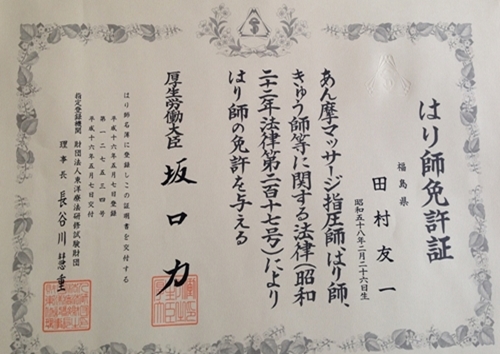 はり師免許証
福島県
田村友一
昭和五十八年二月二十六日生
あん摩マッサージ指圧師、はり師、
きゅう師等に関する法律(昭和
二十二年法律第二百十七号)により
はり師の免許を与える
厚生労働大臣 坂口力
はり師名簿に登録しこの証明書を交付する
平成十六年五月七日登録
第一二七五三四号
平成十六年五月七日交付
指定登録機関 財団法人東洋療法研修試験財団
理事長 長谷川慧重